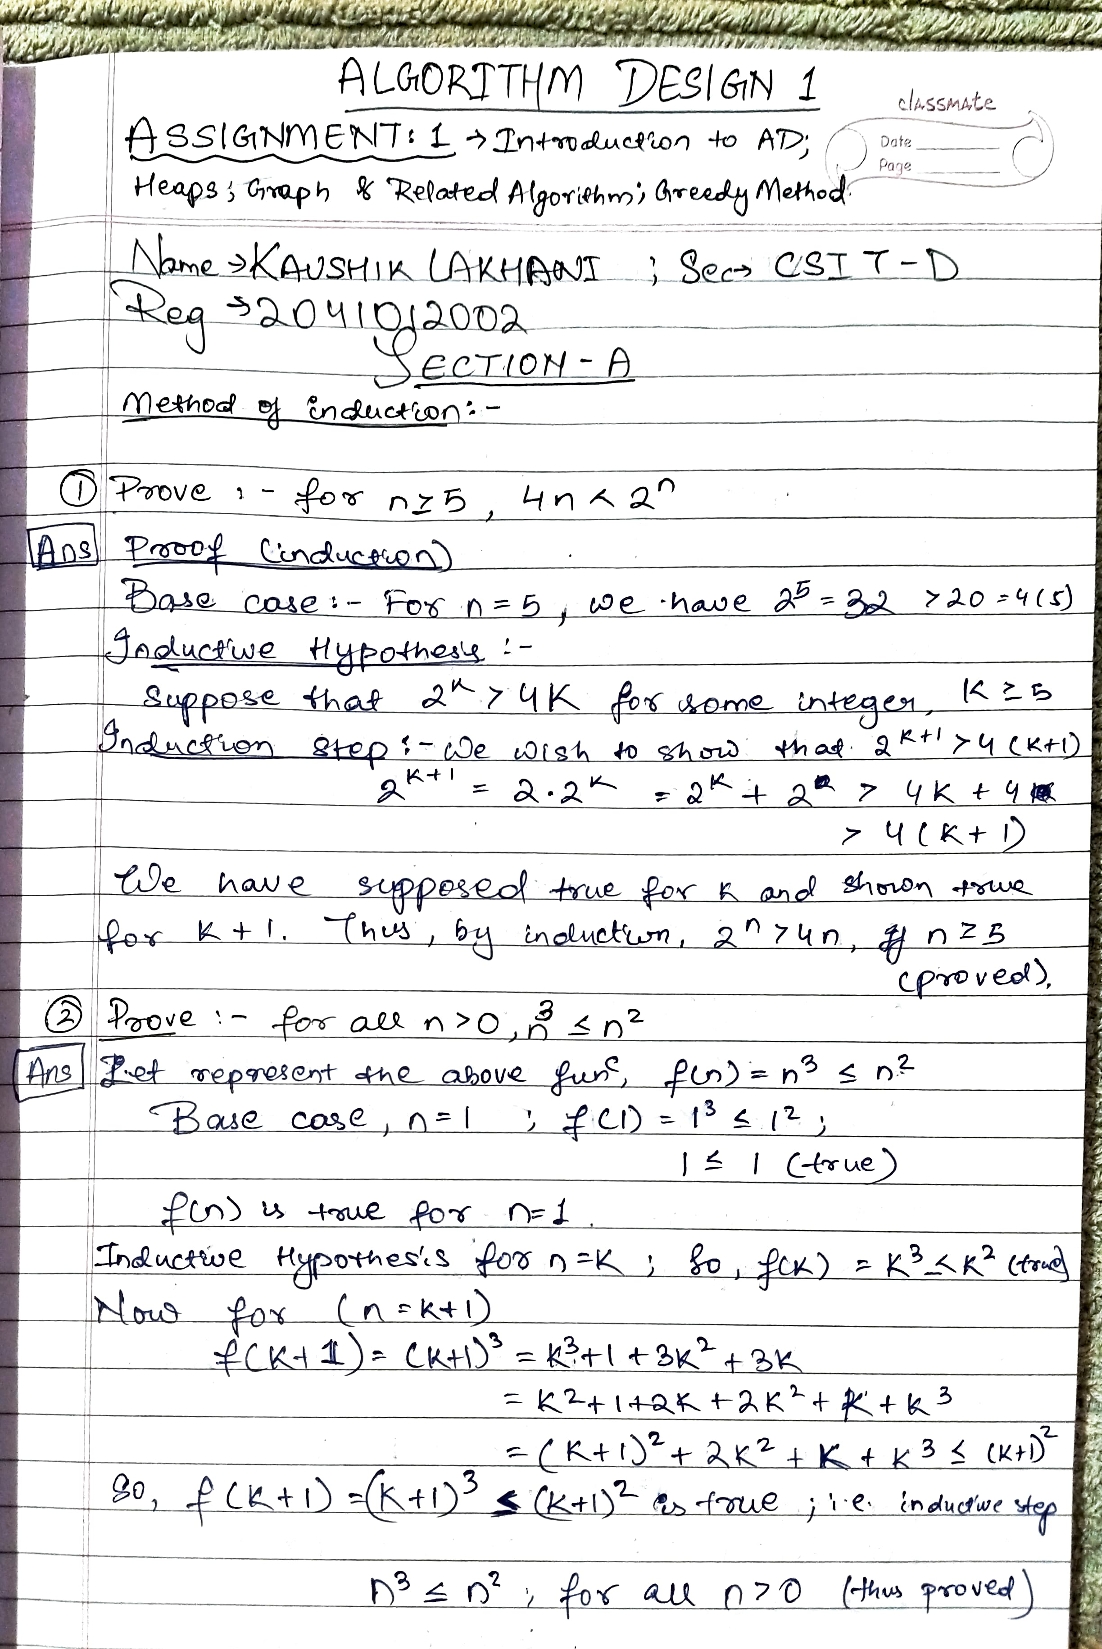 ALGORITHM DESIGN 1
classmate
Date
Page
ASSIGNMENT: 1 → Introduction to AD;
Heaps; Graph & Related Algorithm; Greedy Method.
Name → KAUSHIK LAKHANI ; Sec → CSIT-D
Reg → 2041012002
SECTION-A
Method of induction:-
① Prove :- for n≥5, 4n < 2ⁿ
Ans Proof (induction)
Base case:- For n=5, we have 2⁵ = 32 > 20 = 4(5)
Inductive Hypothesis :-
Suppose that 2ᴷ > 4K for some integer, K ≥ 5
Induction step :- We wish to show that 2ᴷ⁺¹ > 4(K+1)
2ᴷ⁺¹ = 2·2ᴷ = 2ᴷ + 2 > 4K + 4
> 4(K+1)
We have supposed true for k and shown true
for K+1. Thus, by induction, 2ⁿ > 4n, if n ≥ 5
(proved).
② Prove :- for all n>0, n³ ≤ n²
Ans Let represent the above funⁿ, f(n) = n³ ≤ n²
Base case, n=1 ; f(1) = 1³ ≤ 1² ;
1 ≤ 1 (true)
f(n) is true for n=1.
Inductive Hypothesis for n=K ; So, f(K) = K³ ≤ K² (true)
Now for (n = k+1)
f(K+1) = (K+1)³ = K³+1+3K²+3K
= K²+1+2K+2K²+K+K³
= (K+1)²+2K²+K+K³ ≤ (K+1)²
So, f(K+1) = (K+1)³ ≤ (K+1)² is true ; i.e. inductive step
n³ ≤ n² ; for all n>0 (thus proved)